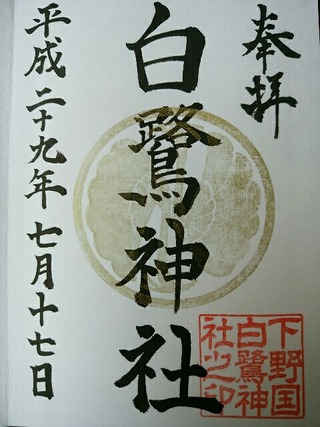 奉拝
白鷺神社
平成二十九年七月十七日
下野国
白鷺神
社之印